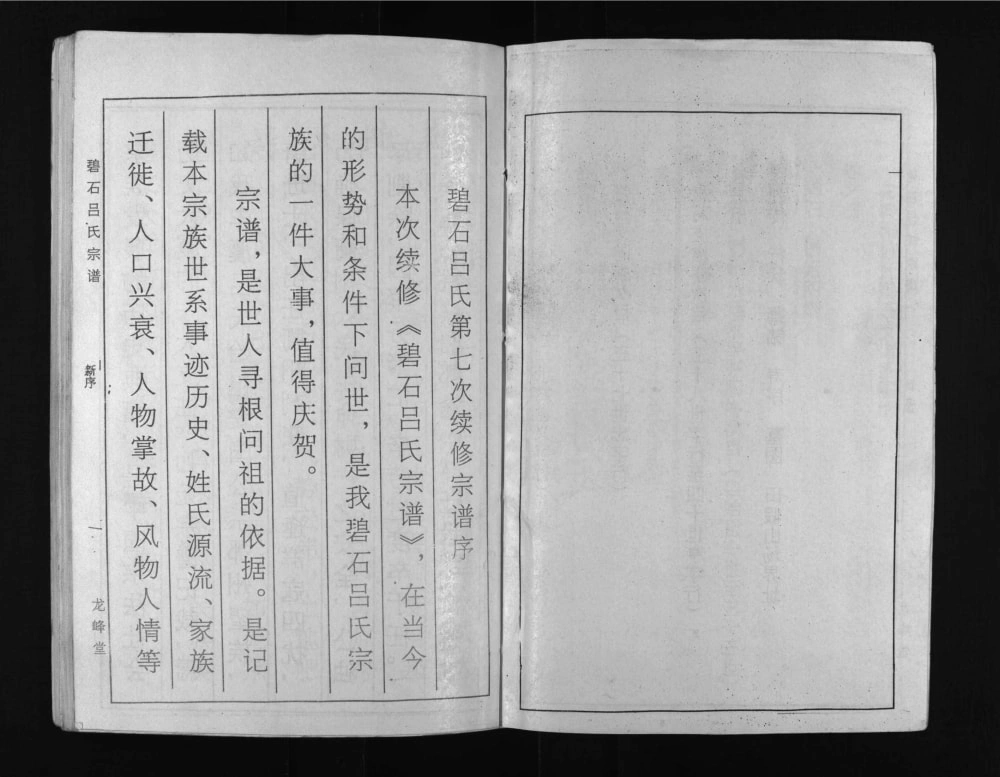 碧石吕氏第七次续修宗谱序
本次续修《碧石吕氏宗谱》，在当今
的形势和条件下问世，是我碧石吕氏宗
族的一件大事，值得庆贺。
宗谱，是世人寻根问祖的依据。是记
载本宗族世系事迹历史、姓氏源流、家族
迁徙、人口兴衰、人物掌故、风物人情等
碧石吕氏宗谱
新序
一
龙峰堂